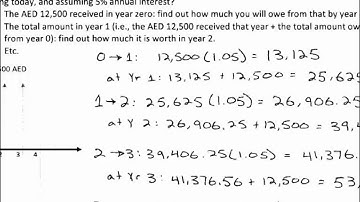 ng today, and assuming 5% annual interest?
The AED 12,500 received in year zero: find out how much you will owe from that by year
The total amount in year 1 (i.e., the AED 12,500 received that year + the total amount ow
from year 0): find out how much it is worth in year 2.
Etc.
00 AED
0→1: 12,500 (1.05) = 13,125
at Yr 1: 13,125 + 12,500 = 25,625
1→2: 25,625 (1.05) = 26,906.25
at Y 2: 26,906.25 + 12,500 = 39,4
2→3: 39,406.25 (1.05) = 41,376.
at Yr 3: 41,376.56 + 12,500 = 53,
3 4